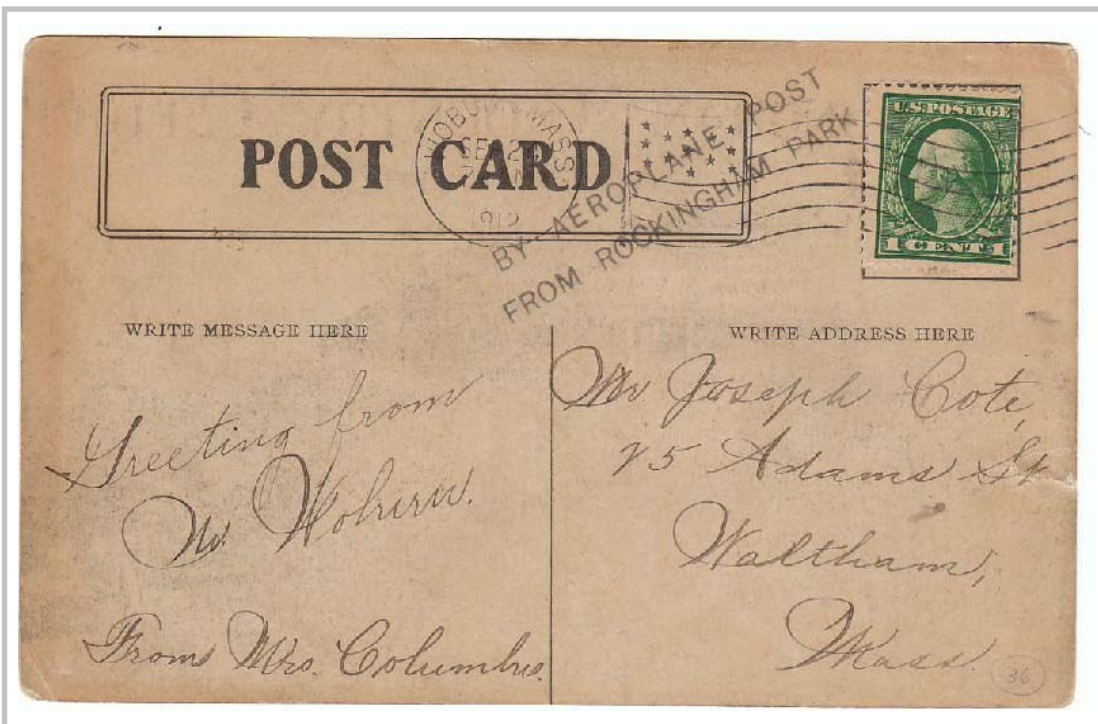 POST CARD
WOBURN MASS
SEP
1912
BY AEROPLANE POST
FROM ROCKINGHAM PARK
U.S. POSTAGE
1 CENT 1
WRITE MESSAGE HERE
WRITE ADDRESS HERE
Greeting from
No. Woburn.
From Mrs. Columbus.
Mr Joseph Cote,
25 Adams St
Waltham,
Mass.
36